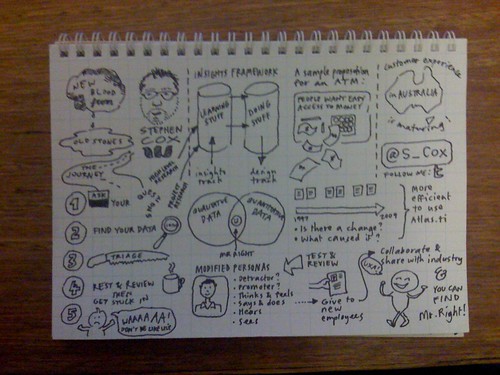 NEW
BLOOD
OLD STORIES
THE
JOURNEY
1 ASK YOUR
2 FIND YOUR DATA
3 TRIAGE
4 REST & REVIEW
THEN
GET STUCK IN
5
WAAAAAA!
DON'T BE LIKE
STEPHEN
COX
INSIGHTS FRAMEWORK
LEARNING
STUFF
DOING
STUFF
insights
track
design
track
QUALITATIVE
DATA
QUANTITATIVE
DATA
MR RIGHT
MODIFIED PERSONAS
• Detractor?
• Promoter?
• Thinks & feels
• Says & does
• Hears
• Sees
A sample proposition
for an ATM:
PEOPLE WANT EASY
ACCESS TO MONEY
1997 2009
• Is there a change?
• What caused it?
TEST &
REVIEW
Give to
new
employees
customer experience
in AUSTRALIA
is maturing!
@S_Cox
FOLLOW ME:
More
efficient
to use
Atlas.ti
Collaborate &
share with industry
YOU CAN
FIND
Mr. Right!